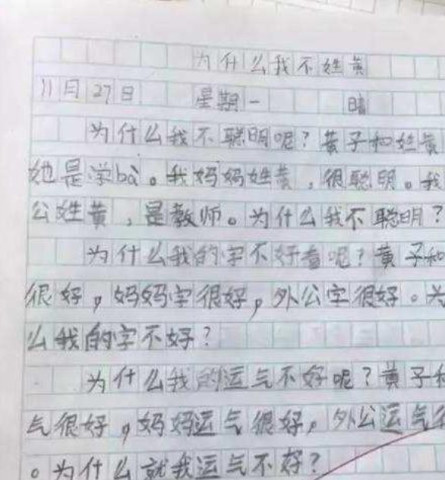 为什么我不姓黄
11月27日 星期一 晴
为什么我不聪明呢？黄子和姓黄
她是学bà。我妈妈姓黄，很聪明。我
公姓黄，是教师。为什么我不聪明？
为什么我的字不好看呢？黄子和
很好，妈妈字很好，外公字很好。为
么我的字不好？
为什么我的运气不好呢？黄子和
气很好，妈妈运气很好，外公运气很
。为什么就我运气不好？